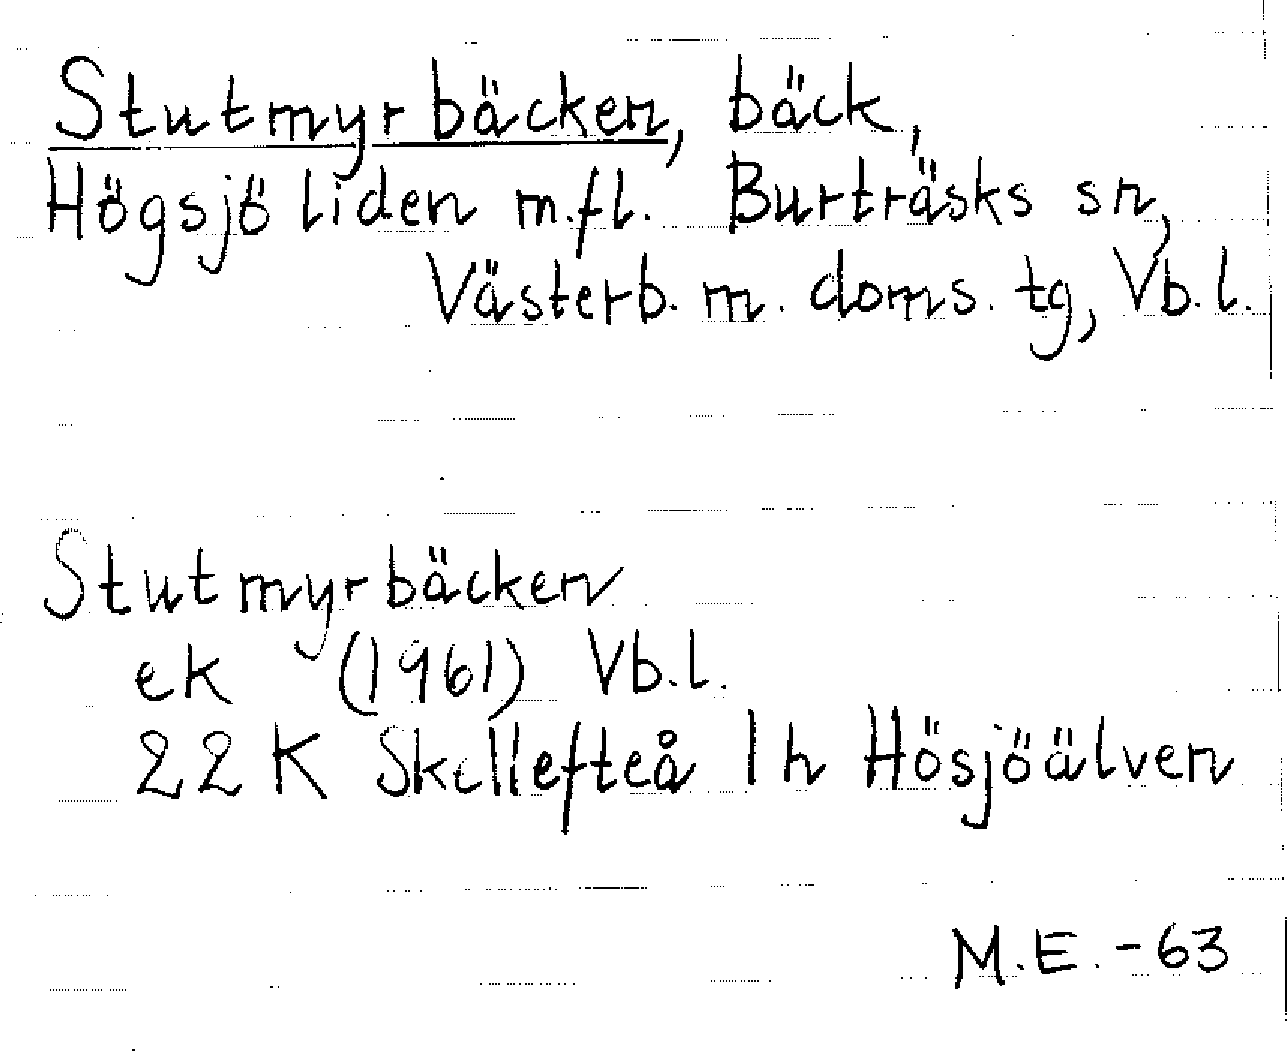 Stutmyrbäcken, bäck,
Högsjöliden m.fl. Burträsks sn,
Västerb. m. doms. tg, Vb.l.
Stutmyrbäcken
ek (1961) Vb.l.
22 K Skellefteå 1h Hösjöälven
M.E. -63